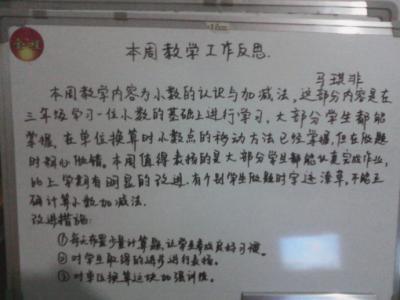 本周教学工作反思.
马琪非
本周教学内容为小数的认识与加减法，这部分内容是在
三年级学习一位小数的基础上进行学习，大部分学生都能
掌握，在单位换算时小数点的移动方法已经掌握，但在做题
时粗心做错。本周值得表扬的是大部分学生都能认真完成作业，
比上学期有明显的改进。有个别学生做题时字迹潦草，不能正
确计算小数加减法。
改进措施：
①每天布置少量计算题，让学生养成良好习惯。
②对学生取得的进步进行表扬。
③对单位换算这块加强训练。